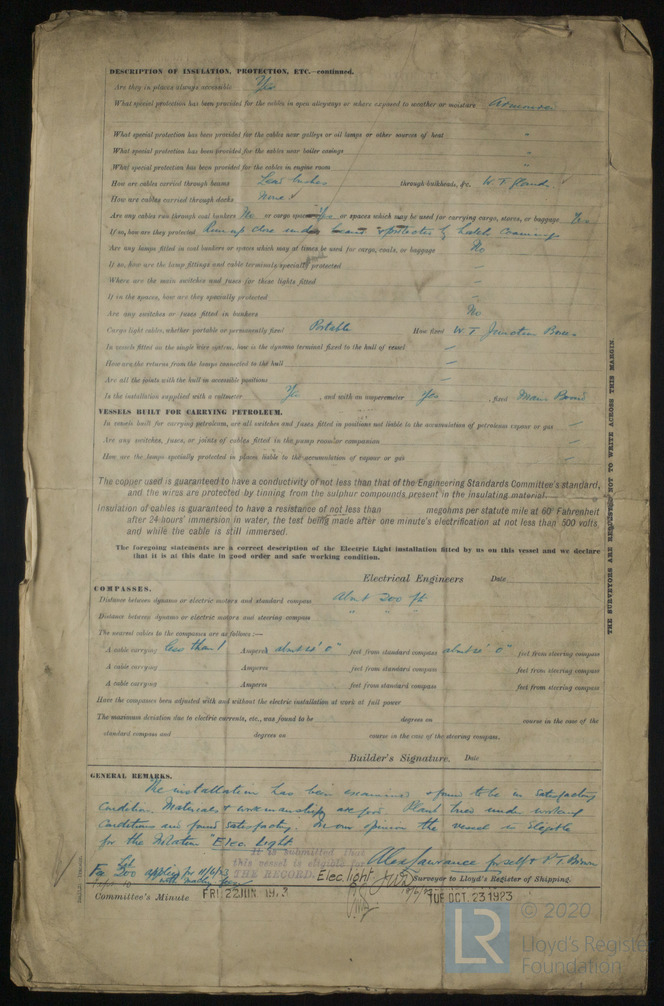 DESCRIPTION OF INSULATION, PROTECTION, ETC.—continued.
Are they in places always accessible Yes
What special protection has been provided for the cables in open alleyways or where exposed to weather or moisture Armoured
What special protection has been provided for the cables near galleys or oil lamps or other sources of heat "
What special protection has been provided for the cables near boiler casings "
What special protection has been provided for the cables in engine room "
How are cables carried through beams Lead bushes through bulkheads, &c. W. T. glands
How are cables carried through decks None
Are any cables run through coal bunkers No or cargo spaces Yes or spaces which may be used for carrying cargo, stores, or baggage Yes
If so, how are they protected Run up close under & protected by hatch coamings
Are any lamps fitted in coal bunkers or spaces which may at times be used for cargo, coals, or baggage No
If so, how are the lamp fittings and cable terminals specially protected —
Where are the main switches and fuses for these lights fitted —
If in the spaces, how are they specially protected —
Are any switches or fuses fitted in bunkers No
Cargo light cables, whether portable or permanently fixed Portable How fixed W. T. Junction Boxes
In vessels fitted on the single wire system, how is the dynamo terminal fixed to the hull of vessel —
How are the returns from the lamps connected to the hull —
Are all the joints with the hull in accessible positions —
Is the installation supplied with a voltmeter Yes , and with an amperemeter Yes , fixed Main Board
VESSELS BUILT FOR CARRYING PETROLEUM.
In vessels built for carrying petroleum, are all switches and fuses fitted in positions not liable to the accumulation of petroleum vapour or gas —
Are any switches, fuses, or joints of cables fitted in the pump room or companion —
How are the lamps specially protected in places liable to the accumulation of vapour or gas —
The copper used is guaranteed to have a conductivity of not less than that of the Engineering Standards Committee's standard,
and the wires are protected by tinning from the sulphur compounds present in the insulating material.
Insulation of cables is guaranteed to have a resistance of not less than megohms per statute mile at 60° Fahrenheit
after 24 hours' immersion in water, the test being made after one minute's electrification at not less than 500 volts,
and while the cable is still immersed.
The foregoing statements are a correct description of the Electric Light installation fitted by us on this vessel and we declare
that it is at this date in good order and safe working condition.
Electrical Engineers Date
COMPASSES.
Distance between dynamo or electric motors and standard compass about 200 ft
Distance between dynamo or electric motors and steering compass " " "
The nearest cables to the compasses are as follows:—
A cable carrying less than 1 Amperes feet from standard compass feet from steering compass
A cable carrying Amperes feet from standard compass feet from steering compass
A cable carrying Amperes feet from standard compass feet from steering compass
Have the compasses been adjusted with and without the electric installation at work at full power
The maximum deviation due to electric currents, etc., was found to be degrees on course in the case of the
standard compass and degrees on course in the case of the steering compass.
Builder's Signature. Date
GENERAL REMARKS.
The installation has been examined & found to be in satisfactory
condition. Materials & workmanship are good. Plant tried under working
conditions and found satisfactory. In our opinion the vessel is eligible
for the Notation "Elec Light"
It is submitted that
this vessel is eligible for
THE RECORD. Elec. light
Fee applied for 11/6/23
Surveyor to Lloyd's Register of Shipping.
Committee's Minute FRI 22 JUN 1923 TUE OCT. 23 1923
THE SURVEYORS ARE REQUESTED NOT TO WRITE ACROSS THIS MARGIN.
LR
© 2020
Lloyd's Register
Foundation